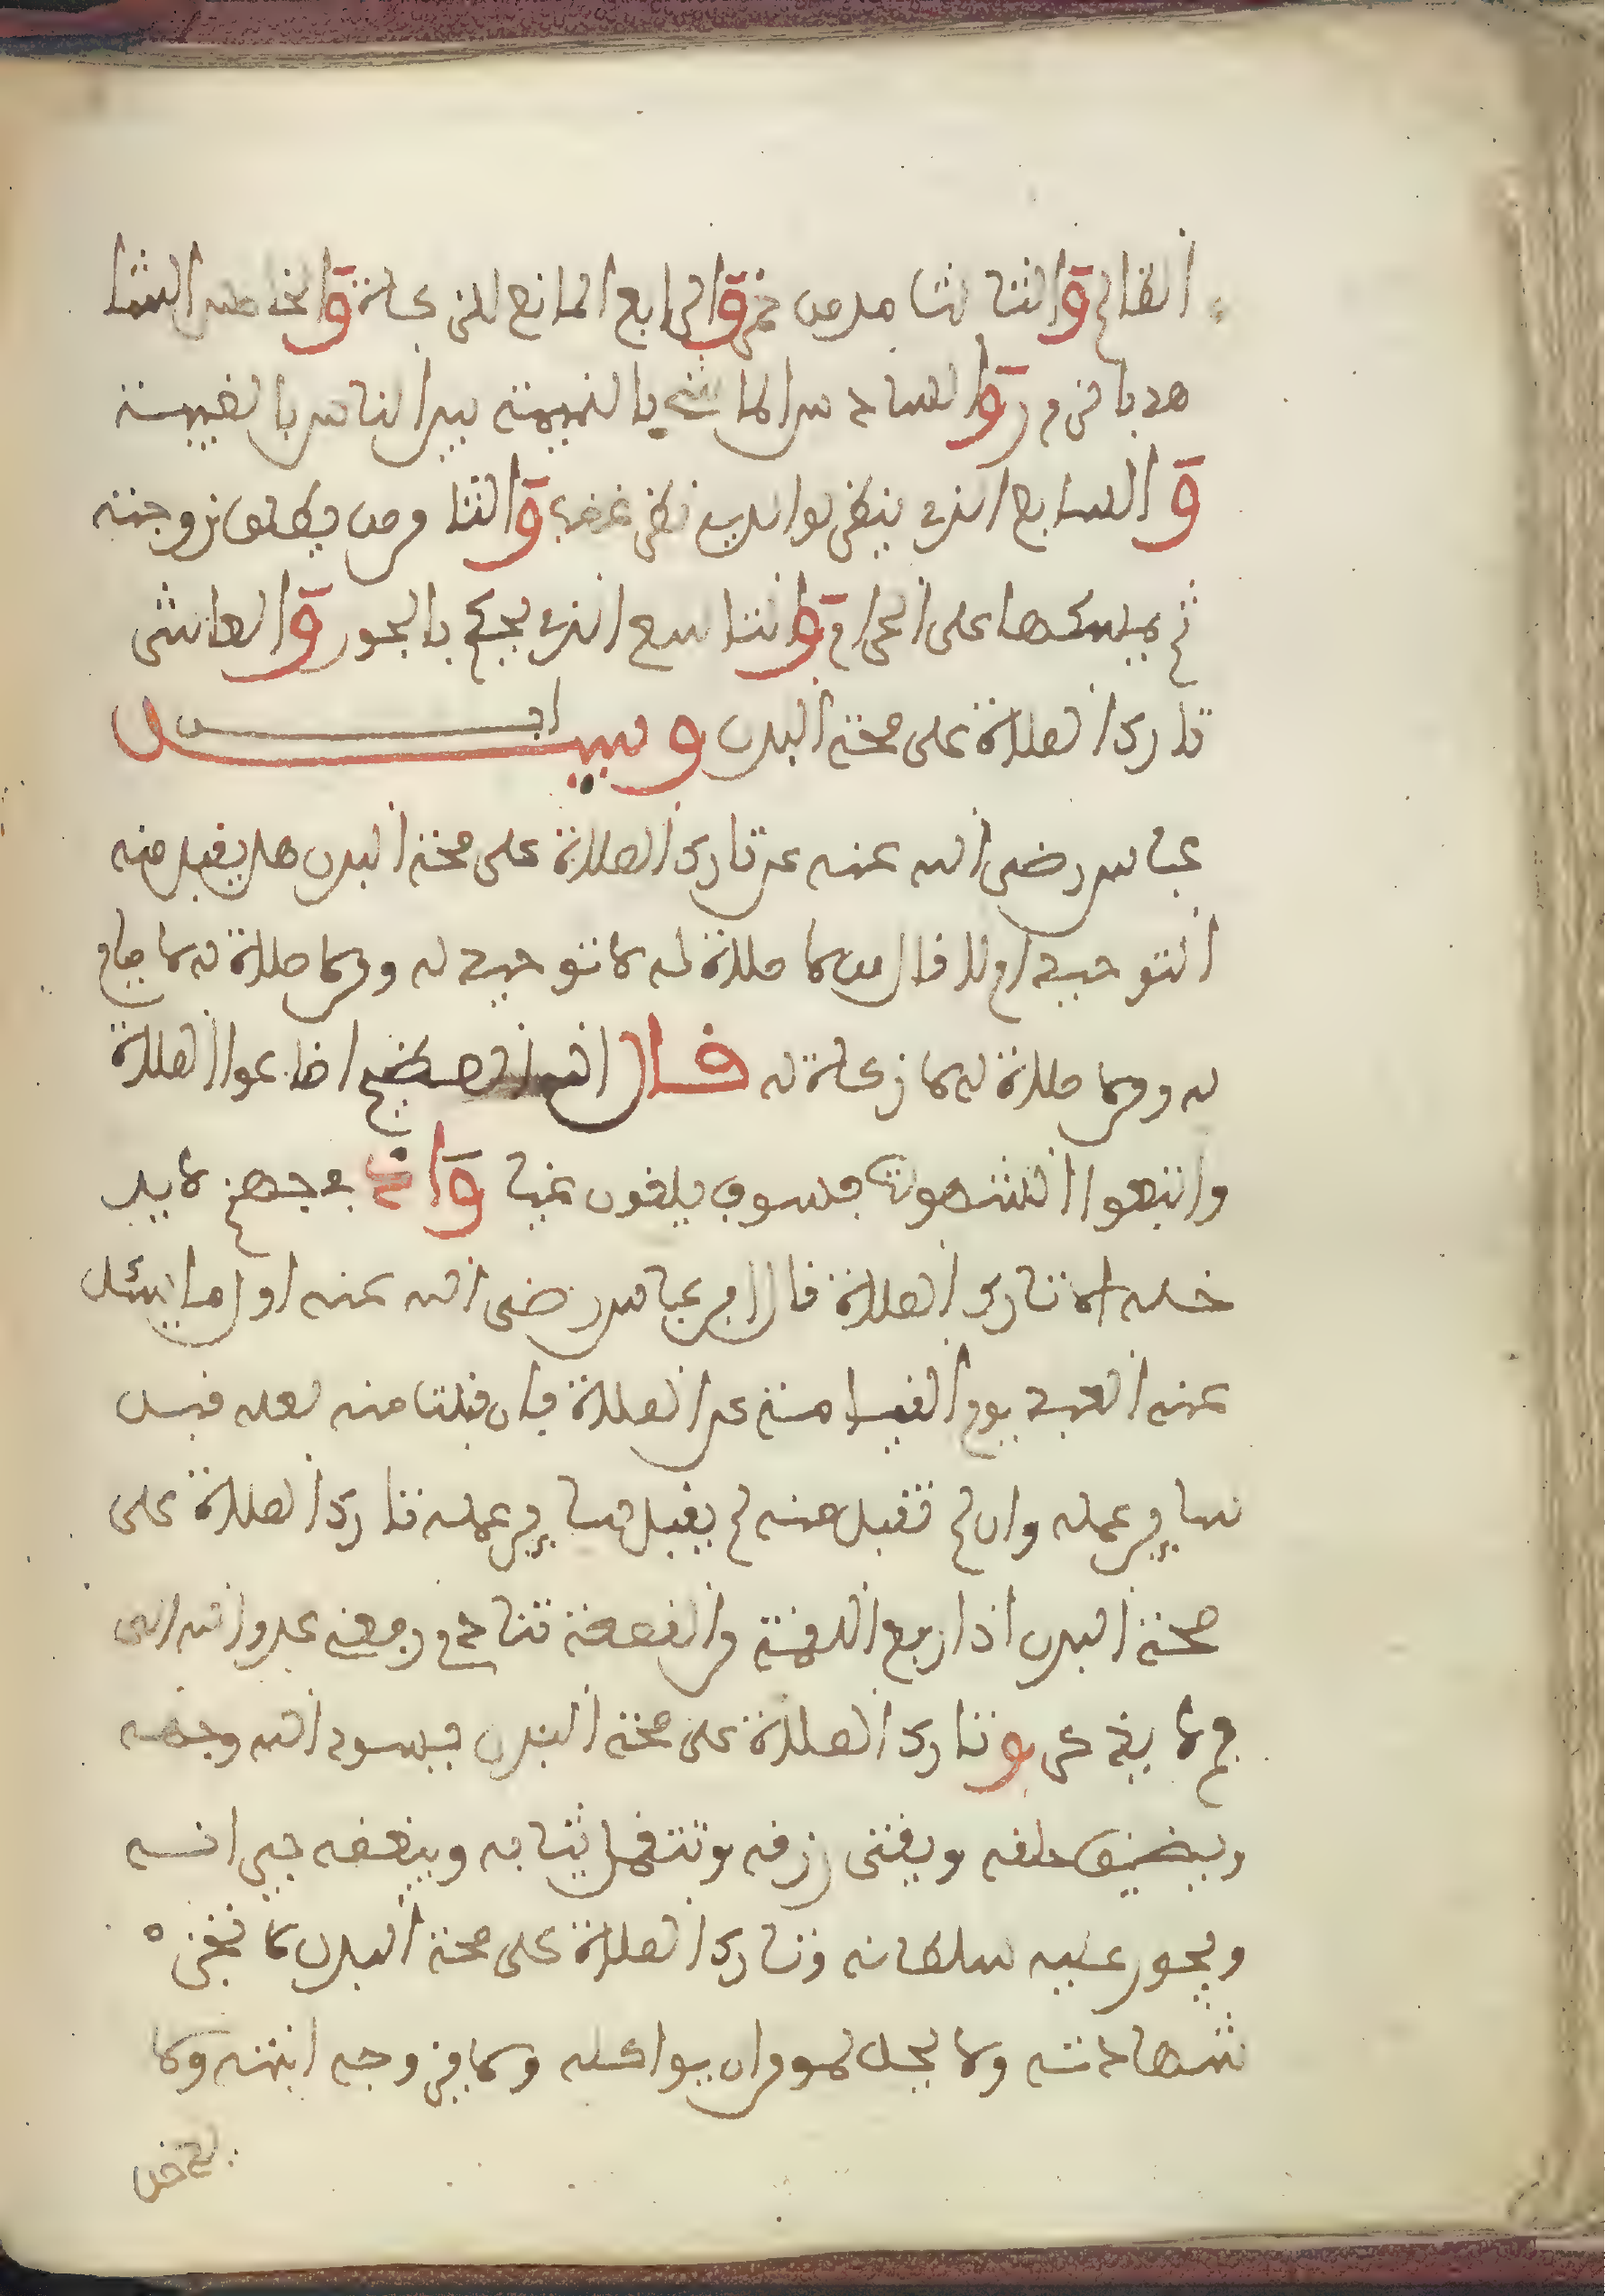 الظالم والثالث مدمن خمر والرابع المانع للزكاة والخامس الشا
هد بالزور والسادس الماشي بالنميمة بين الناس بالغيبة
والسابع الذي ينظر لوالديه نظر غضب والثامن من يطلق زوجته
ثم يمسكها على الحرام والتاسع الذي يحكم بالجور والعاشر
تارك الصلاة على صحة البدن وسيل ابن
عباس رضي الله عنه عن تارك الصلاة على صحة البدن هل يقبل منه
التوحيد ام لا قال من لا صلاة له لا توحيد له ومن لا صلاة له لا صيام
له ومن لا صلاة له لا زكاة له قال الله العظيم اضاعوا الصلاة
واتبعوا الشهوات فسوف يلقون غيا واد في جهنم لا يد
خله الا تارك الصلاة قال ابن عباس رضي الله عنه اول ما يسئل
عنه العبد يوم القيامة عن الصلاة فان قبلت منه لعله قبل
ساير عمله وان لم تقبل منه لم يقبل ساير عمله تارك الصلاة على
صحة البدن اذا رفع اللقمة من القصعة تنادي رفعة عدو الله الى
فم لا يذكر وتارك الصلاة على صحة البدن فيسود الله وجهه
ويضيق خلقه ويفنى رزقه وتثقل ثيابه ويبغضه جيرانه
ويجور عليه سلطانه وتارك الصلاة على صحة البدن لا تجز
شهادته ولا يحل لمومن ان يواكله ولا يزوجه ابنته ولا